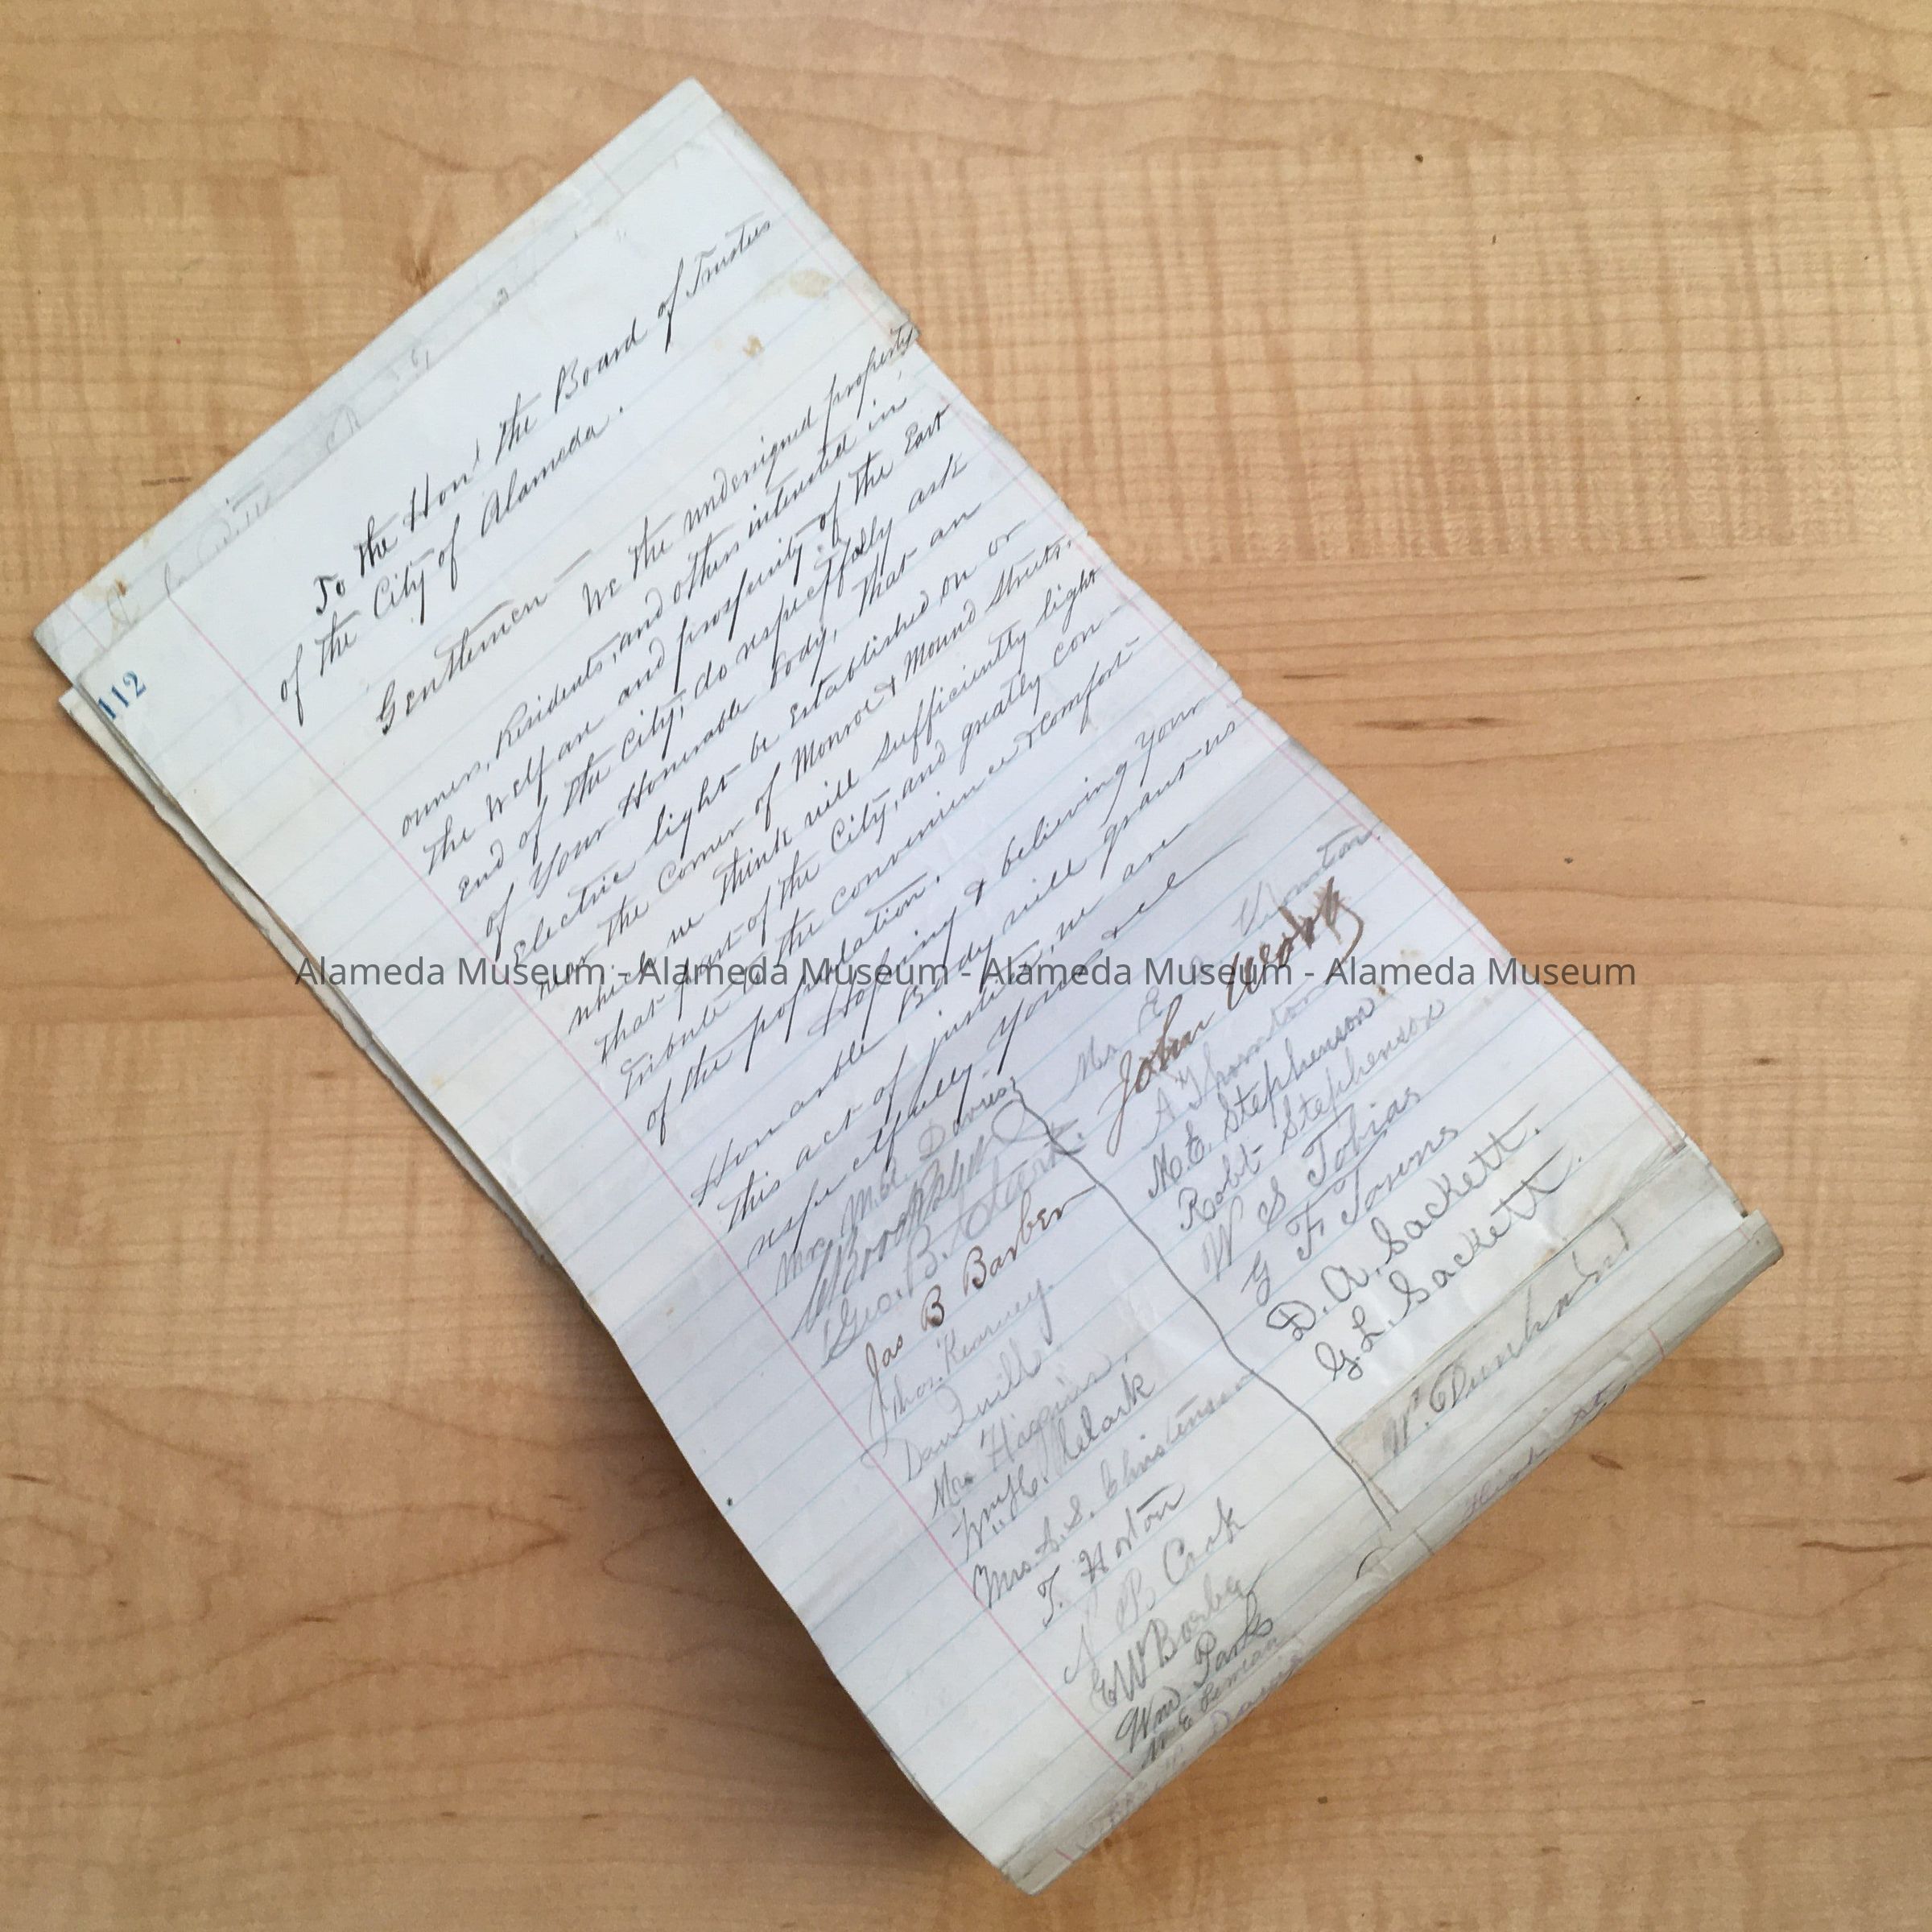 112
To the Hon'l the Board of Trustees
of the City of Alameda.
Gentlemen — We the undersigned property
owners, Residents, and others interested in
the Welfare and prosperity of the East
End of the City, do respectfully ask
of Your Honorable body, that an
Electric light be Established on or
near the Corner of Monroe & Mound Streets,
which we think will sufficiently light
that part of the City, and greatly con-
tribute to the convenience & comfort
of the population.
Hoping & believing Your
Honorable Body will grant us
this act of justice, we are
respectfully Yours &c
Mrs. M. A. Davies,
Geo. B. Clark.
Jas B Barber
Thos. Kearney.
Mrs Higgins
Mrs. A. S. Christensen
T. Horton
B Cook
E W Barber
Wm Park
Mrs E
John
A Thornton
M. E. Stephenson
Robt Stephenson
W S Tobias
G F Towns
D. A. Sackett.
G. L. Sackett.
W.
Alameda Museum - Alameda Museum - Alameda Museum - Alameda Museum